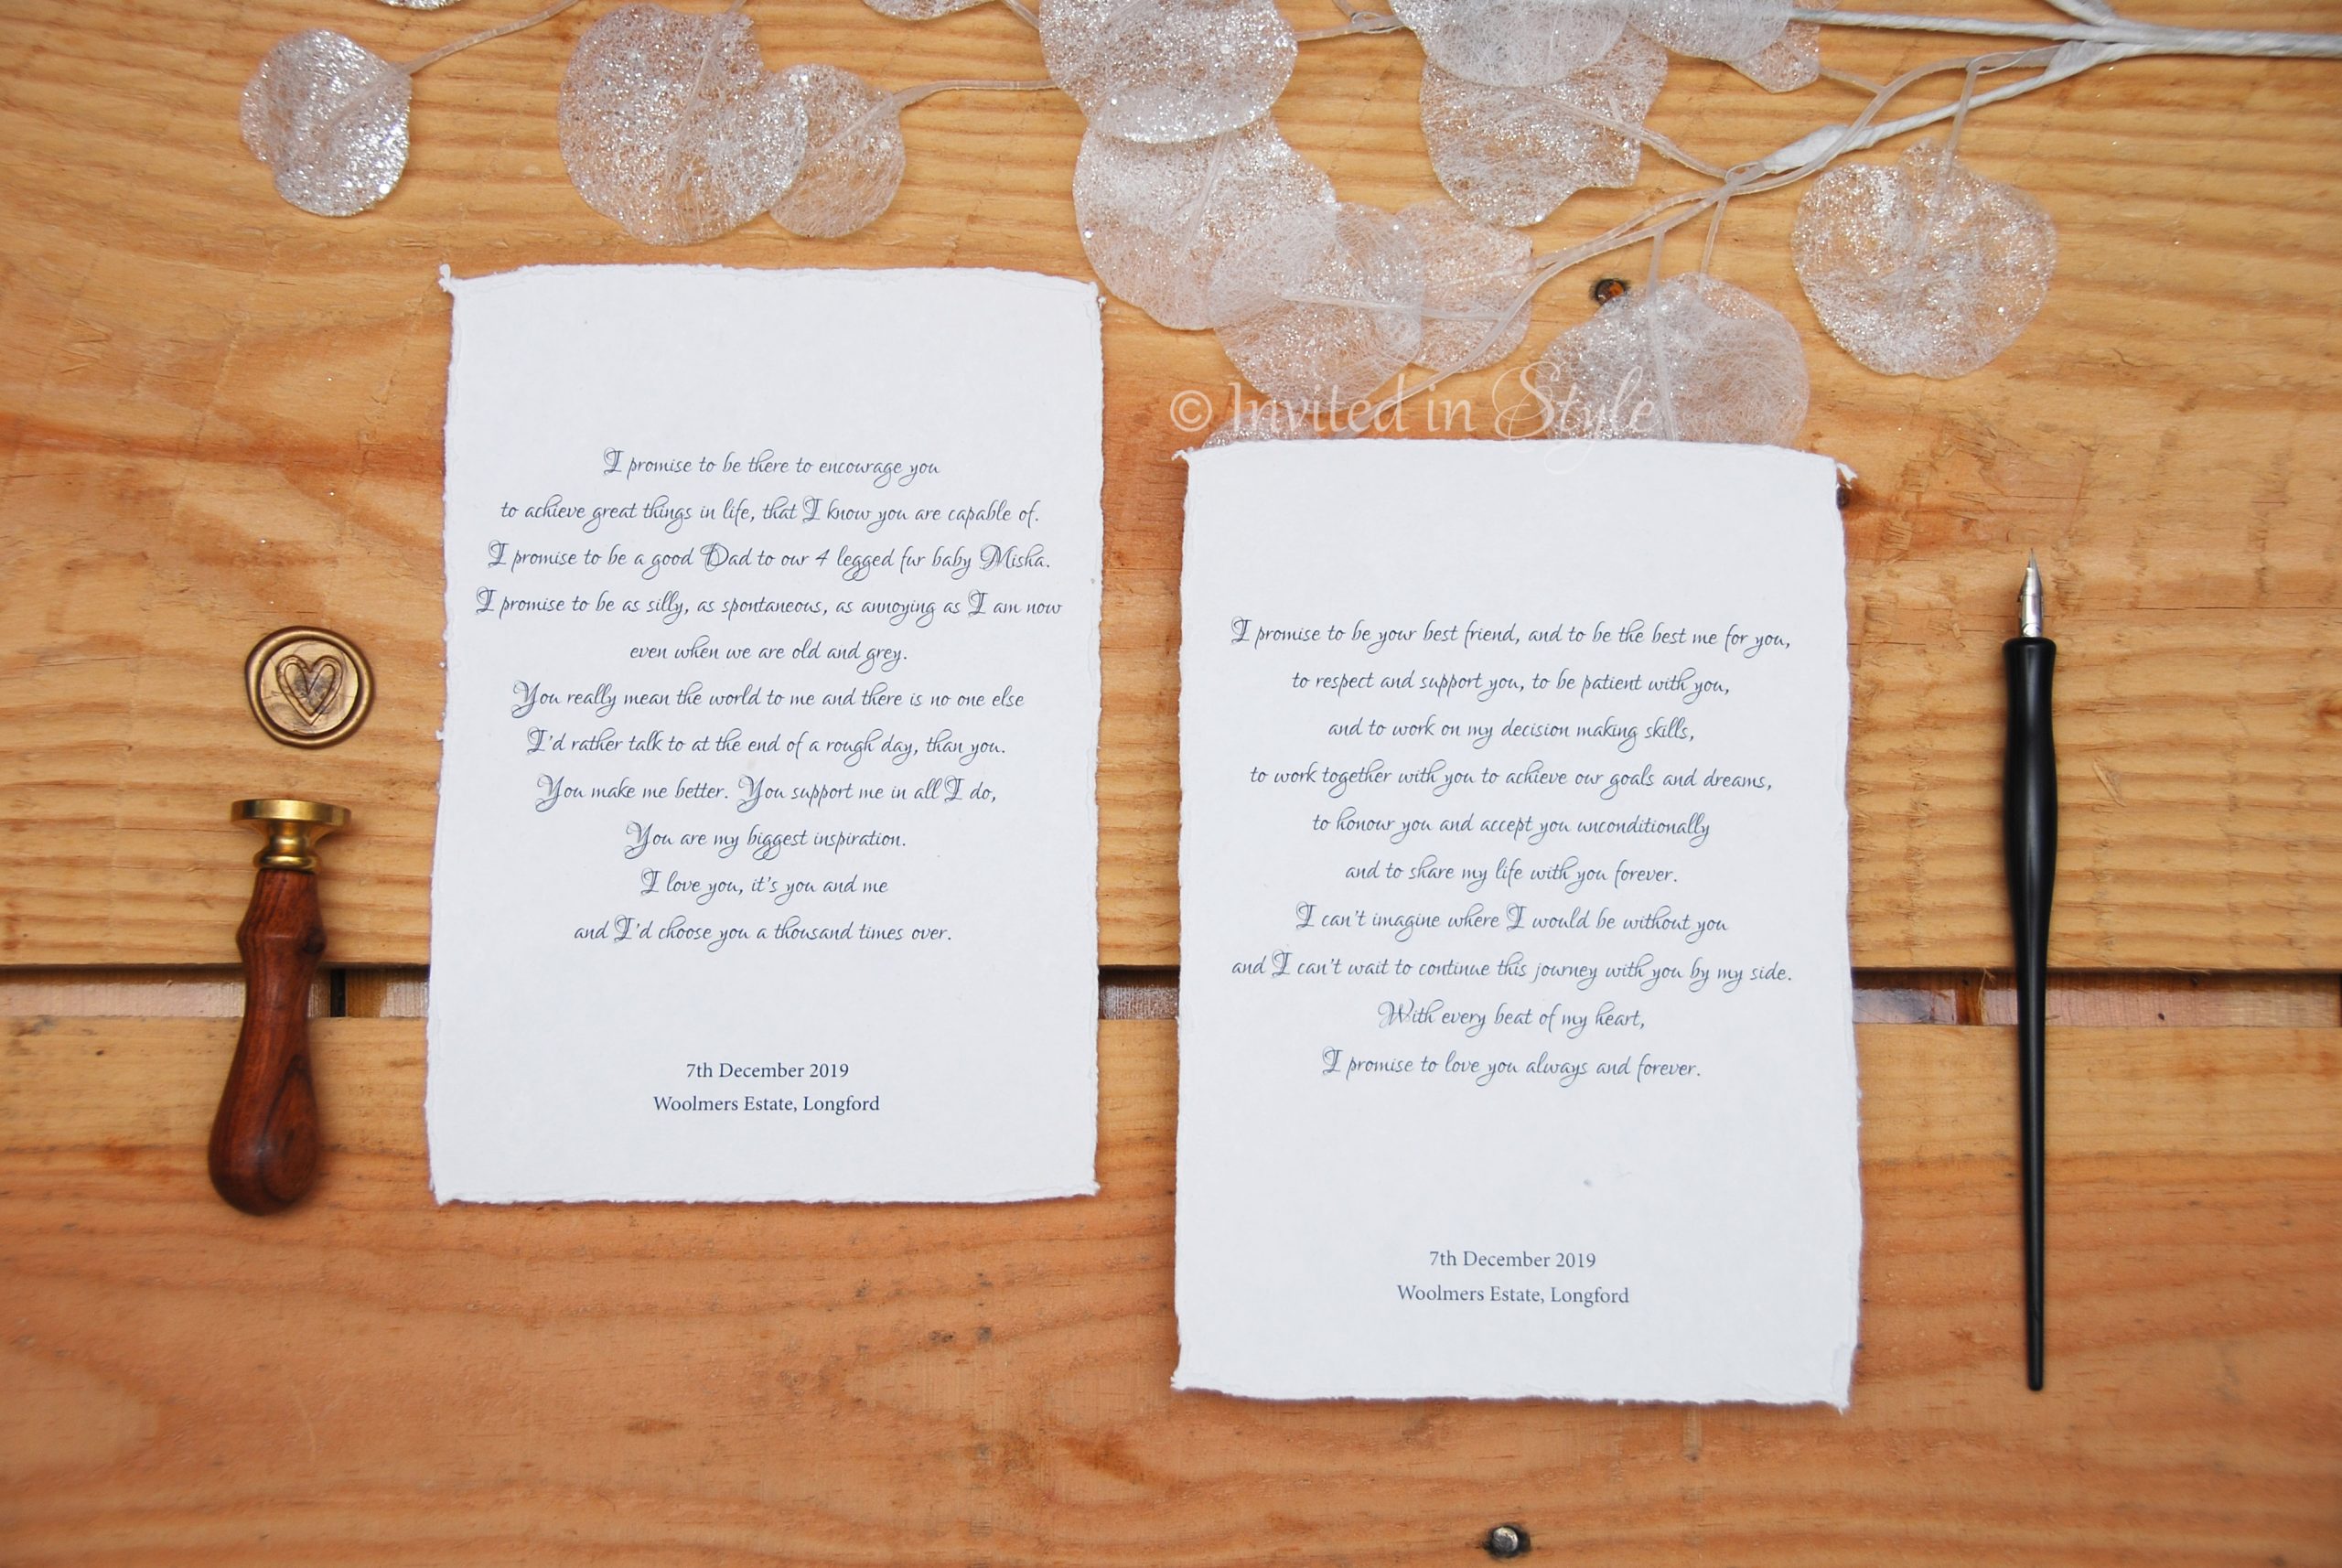 © Invited in Style
I promise to be there to encourage you
to achieve great things in life, that I know you are capable of.
I promise to be a good Dad to our 4 legged fur baby Misha.
I promise to be as silly, as spontaneous, as annoying as I am now
even when we are old and grey.
You really mean the world to me and there is no one else
I'd rather talk to at the end of a rough day, than you.
You make me better. You support me in all I do,
You are my biggest inspiration.
I love you, it's you and me
and I'd choose you a thousand times over.
7th December 2019
Woolmers Estate, Longford
I promise to be your best friend, and to be the best me for you,
to respect and support you, to be patient with you,
and to work on my decision making skills,
to work together with you to achieve our goals and dreams,
to honour you and accept you unconditionally
and to share my life with you forever.
I can't imagine where I would be without you
and I can't wait to continue this journey with you by my side.
With every beat of my heart,
I promise to love you always and forever.
7th December 2019
Woolmers Estate, Longford